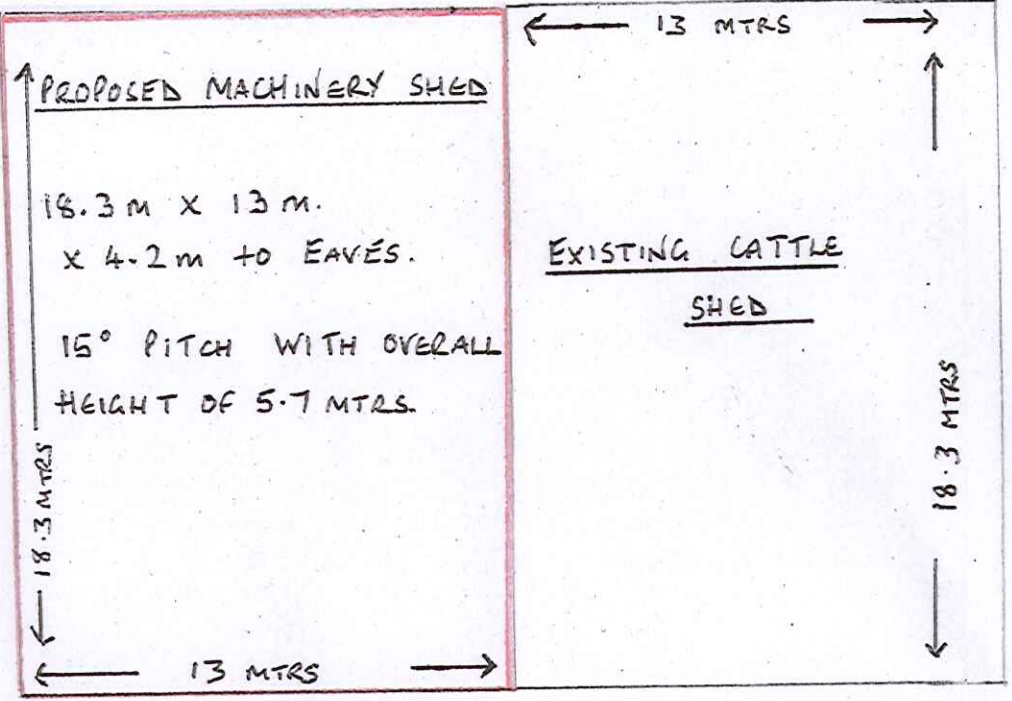 PROPOSED MACHINERY SHED
18.3 m x 13 m.
x 4.2 m to EAVES.
15° PITCH WITH OVERALL
HEIGHT OF 5.7 MTRS.
18.3 MTRS
13 MTRS
13 MTRS
EXISTING CATTLE
SHED
18.3 MTRS